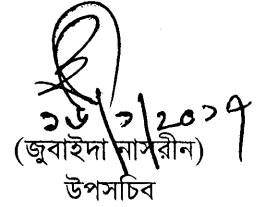 ১৬/১/২০১৭
(জুবাইদা নাসরীন)
উপসচিব